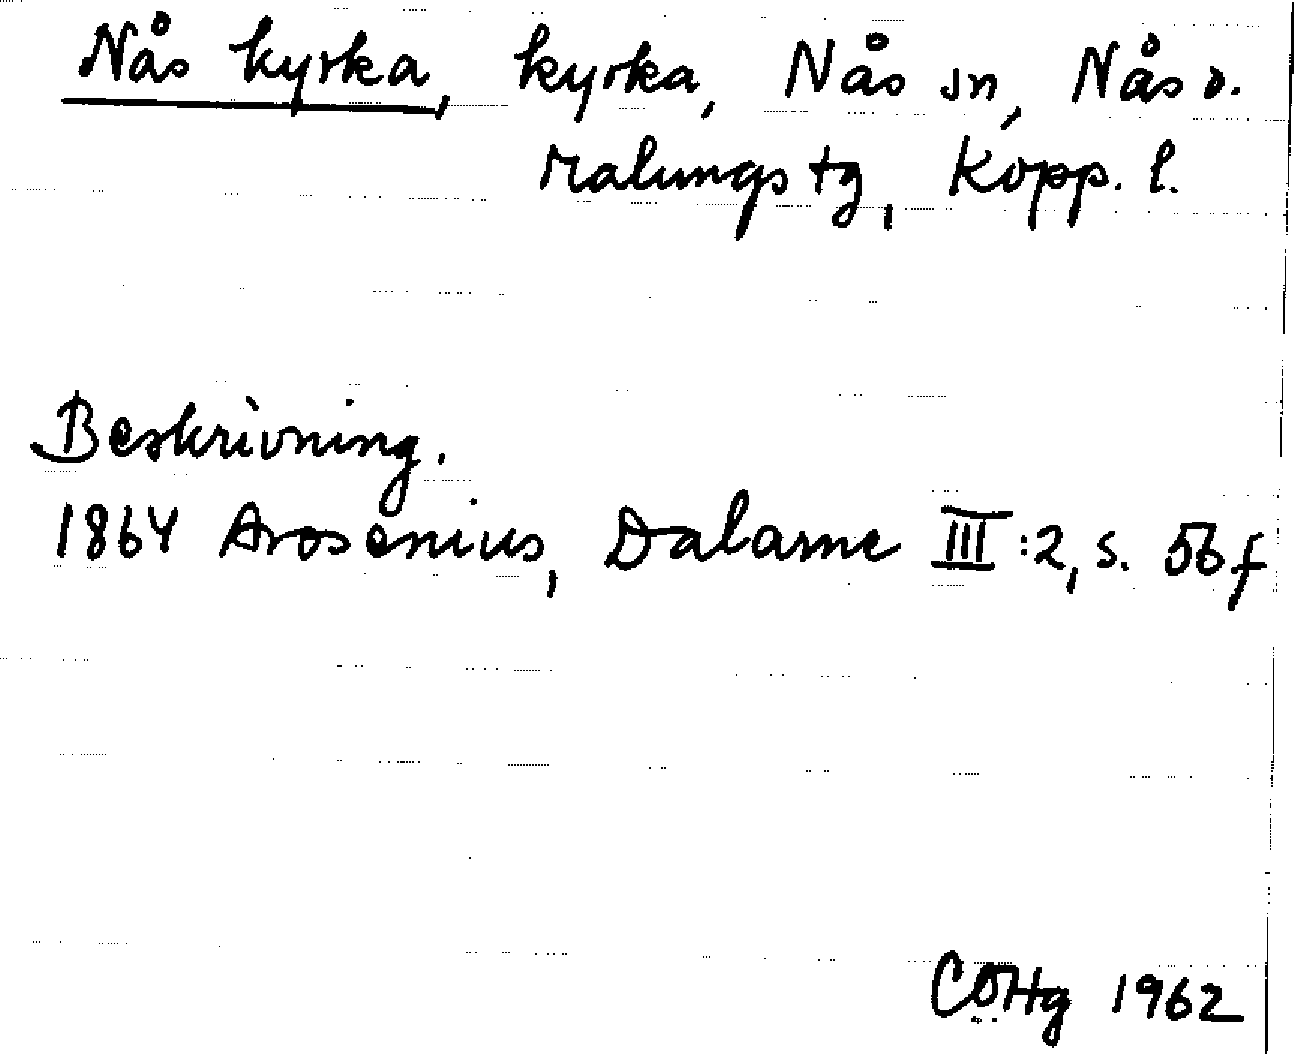 Nås kyrka, kyrka, Nås sn, Nås o.
Malungs tg, Kopp. l.
Beskrivning.
1864 Arosenius, Dalarne III:2, s. 56 f
COHg 1962